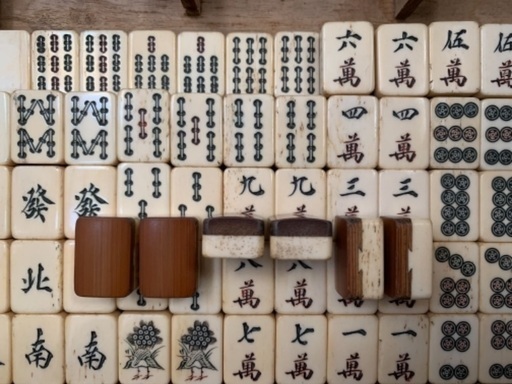 六萬 六萬 伍萬 伍
四萬 四萬
發 發 九 九 三 三
北 八萬 八萬
南 南 七萬 七萬 一萬 一萬